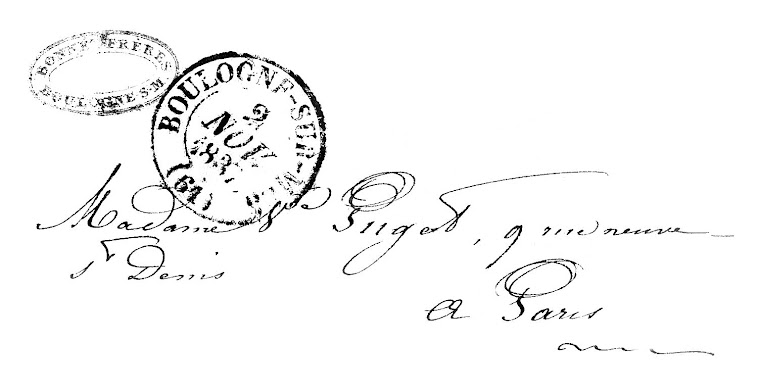 BONNET FRERES
BOULOGNE S.M.
BOULOGNE-SUR-MER
2
NOV
1837
(61)
Madame Vve Puget, 9 rue neuve
st Denis
a Paris